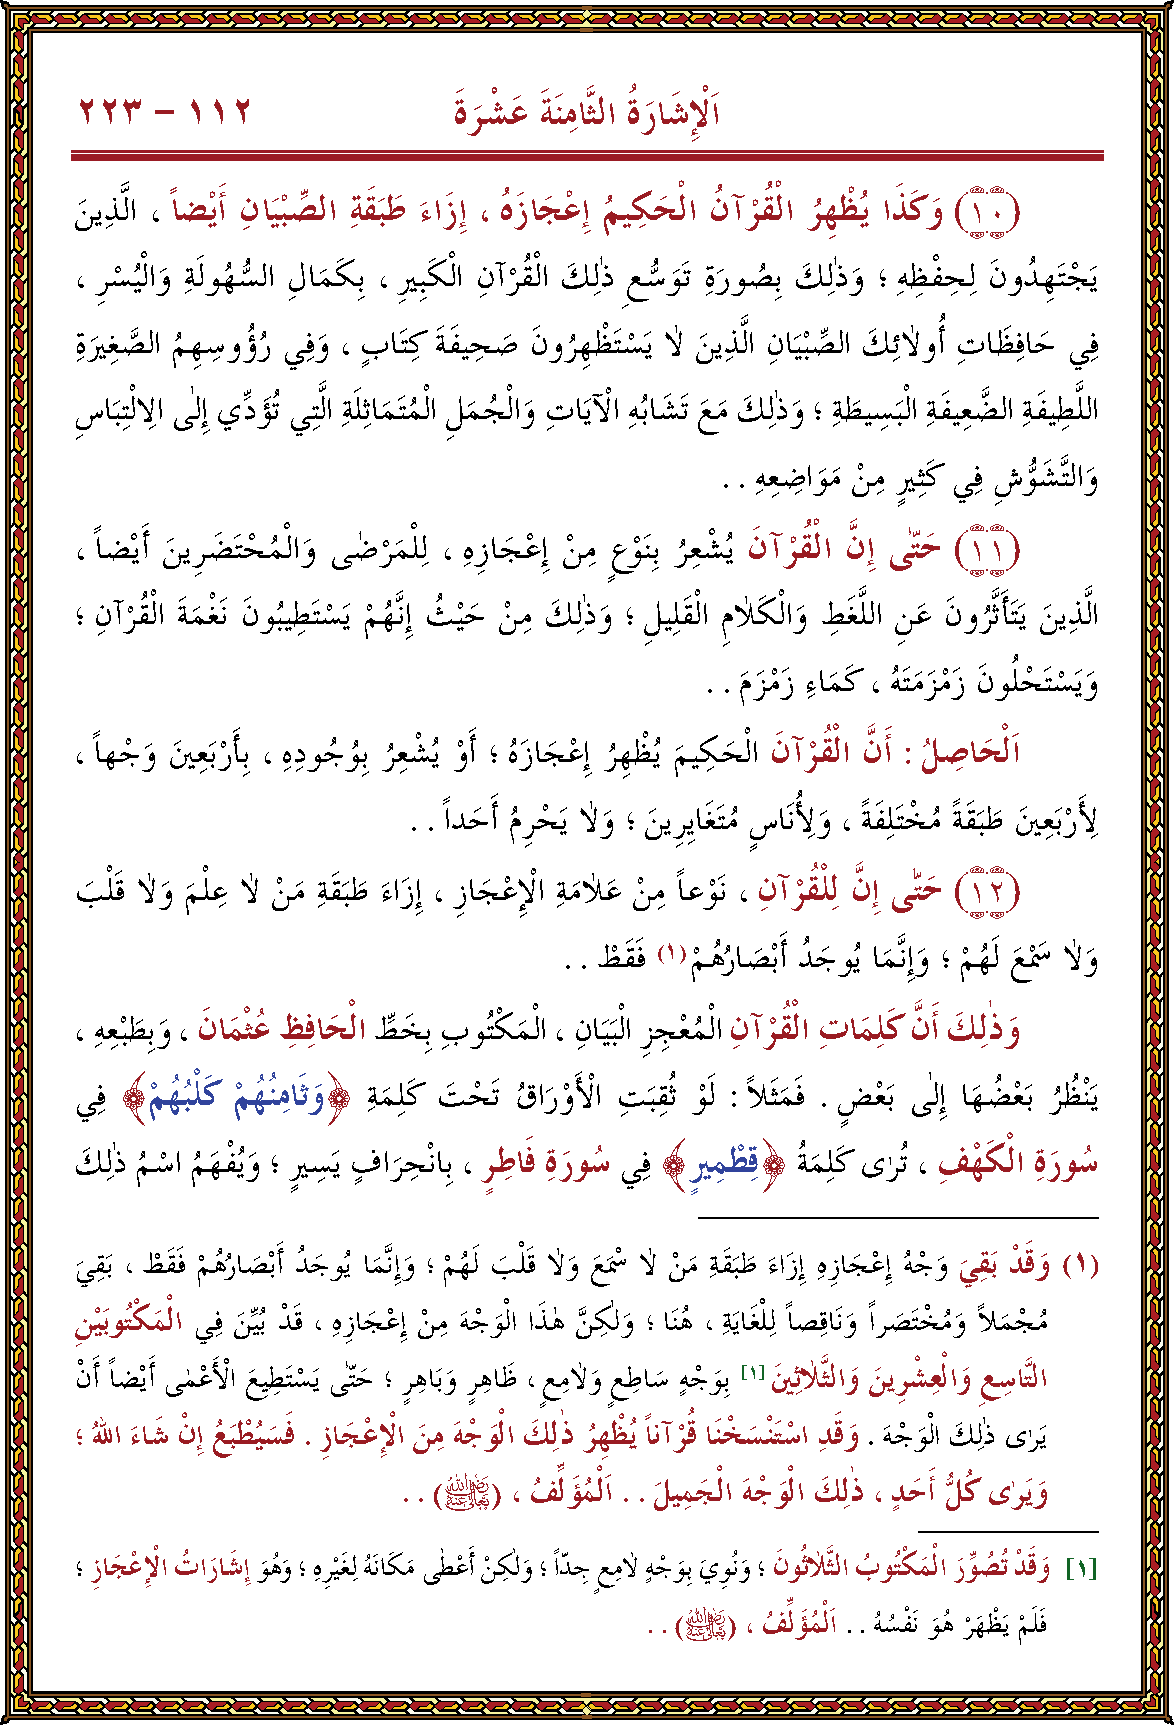 اَلْإِشَارَةُ الثَّامِنَةَ عَشْرَةَ ١١٢ – ٢٢٣
(١٠) وَكَذَا يُظْهِرُ الْقُرْآنُ الْحَكِيمُ إِعْجَازَهُ ، إِزَاءَ طَبَقَةِ الصِّبْيَانِ أَيْضاً ، الَّذِينَ
يَجْتَهِدُونَ لِحِفْظِهِ ؛ وَذٰلِكَ بِصُورَةِ تَوَسُّعِ ذٰلِكَ الْقُرْآنِ الْكَبِيرِ ، بِكَمَالِ السُّهُولَةِ وَالْيُسْرِ ،
فِي حَافِظَاتِ أُولٰئِكَ الصِّبْيَانِ الَّذِينَ لَا يَسْتَظْهِرُونَ صَحِيفَةَ كِتَابٍ ، وَفِي رُؤُوسِهِمُ الصَّغِيرَةِ
اللَّطِيفَةِ الضَّعِيفَةِ الْبَسِيطَةِ ؛ وَذٰلِكَ مَعَ تَشَابُهِ الْآيَاتِ وَالْجُمَلِ الْمُتَمَاثِلَةِ الَّتِي تُؤَدِّي إِلَى الِالْتِبَاسِ
وَالتَّشَوُّشِ فِي كَثِيرٍ مِنْ مَوَاضِعِهِ . .
(١١) حَتّٰى إِنَّ الْقُرْآنَ يُشْعِرُ بِنَوْعٍ مِنْ إِعْجَازِهِ ، لِلْمَرْضٰى وَالْمُحْتَضَرِينَ أَيْضاً ،
الَّذِينَ يَتَأَثَّرُونَ عَنِ اللَّغَطِ وَالْكَلَامِ الْقَلِيلِ ؛ وَذٰلِكَ مِنْ حَيْثُ إِنَّهُمْ يَسْتَطِيبُونَ نَغْمَةَ الْقُرْآنِ ؛
وَيَسْتَحْلُونَ زَمْزَمَتَهُ ، كَمَاءِ زَمْزَمَ . .
اَلْحَاصِلُ : أَنَّ الْقُرْآنَ الْحَكِيمَ يُظْهِرُ إِعْجَازَهُ ؛ أَوْ يُشْعِرُ بِوُجُودِهِ ، بِأَرْبَعِينَ وَجْهاً ،
لِأَرْبَعِينَ طَبَقَةً مُخْتَلِفَةً ، وَلِأُنَاسٍ مُتَغَايِرِينَ ؛ وَلَا يَحْرِمُ أَحَداً . .
(١٢) حَتّٰى إِنَّ لِلْقُرْآنِ ، نَوْعاً مِنْ عَلَامَةِ الْإِعْجَازِ ، إِزَاءَ طَبَقَةِ مَنْ لَا عِلْمَ وَلَا قَلْبَ
وَلَا سَمْعَ لَهُمْ ؛ وَإِنَّمَا يُوجَدُ أَبْصَارُهُمْ (١) فَقَطْ . .
وَذٰلِكَ أَنَّ كَلِمَاتِ الْقُرْآنِ الْمُعْجِزِ الْبَيَانِ ، الْمَكْتُوبِ بِخَطِّ الْحَافِظِ عُثْمَانَ ، وَبِطَبْعِهِ ،
يَنْظُرُ بَعْضُهَا إِلٰى بَعْضٍ . فَمَثَلاً : لَوْ ثُقِبَتِ الْأَوْرَاقُ تَحْتَ كَلِمَةِ ﴿وَثَامِنُهُمْ كَلْبُهُمْ﴾ فِي
سُورَةِ الْكَهْفِ ، تُرٰى كَلِمَةُ ﴿قِطْمِيرٍ﴾ فِي سُورَةِ فَاطِرٍ ، بِانْحِرَافٍ يَسِيرٍ ؛ وَيُفْهَمُ اسْمُ ذٰلِكَ
(١) وَقَدْ بَقِيَ وَجْهُ إِعْجَازِهِ إِزَاءَ طَبَقَةِ مَنْ لَا سَمْعَ وَلَا قَلْبَ لَهُمْ ؛ وَإِنَّمَا يُوجَدُ أَبْصَارُهُمْ فَقَطْ ، بَقِيَ
مُجْمَلاً وَمُخْتَصَراً وَنَاقِصاً لِلْغَايَةِ ، هُنَا ؛ وَلٰكِنَّ هٰذَا الْوَجْهَ مِنْ إِعْجَازِهِ ، قَدْ بُيِّنَ فِي الْمَكْتُوبَيْنِ
التَّاسِعِ وَالْعِشْرِينَ وَالثَّلَاثِينَ [١] بِوَجْهٍ سَاطِعٍ وَلَامِعٍ ، ظَاهِرٍ وَبَاهِرٍ ؛ حَتّٰى يَسْتَطِيعَ الْأَعْمٰى أَيْضاً أَنْ
يَرٰى ذٰلِكَ الْوَجْهَ . وَقَدِ اسْتَنْسَخْنَا قُرْآناً يُظْهِرُ ذٰلِكَ الْوَجْهَ مِنَ الْإِعْجَازِ . فَسَيُطْبَعُ إِنْ شَاءَ اللهُ ؛
وَيَرٰى كُلُّ أَحَدٍ ، ذٰلِكَ الْوَجْهَ الْجَمِيلَ . . اَلْمُؤَلِّفُ ، (رَضِيَ اللهُ تَعَالٰى عَنْهُ) . .
[١] وَقَدْ تُصُوِّرَ الْمَكْتُوبُ الثَّلَاثُونَ ؛ وَنُوِيَ بِوَجْهٍ لَامِعٍ جِدّاً ؛ وَلٰكِنْ أَعْطٰى مَكَانَهُ لِغَيْرِهِ ؛ وَهُوَ إِشَارَاتُ الْإِعْجَازِ ؛
فَلَمْ يَظْهَرْ هُوَ نَفْسُهُ . . اَلْمُؤَلِّفُ ، (رَضِيَ اللهُ تَعَالٰى عَنْهُ) . .